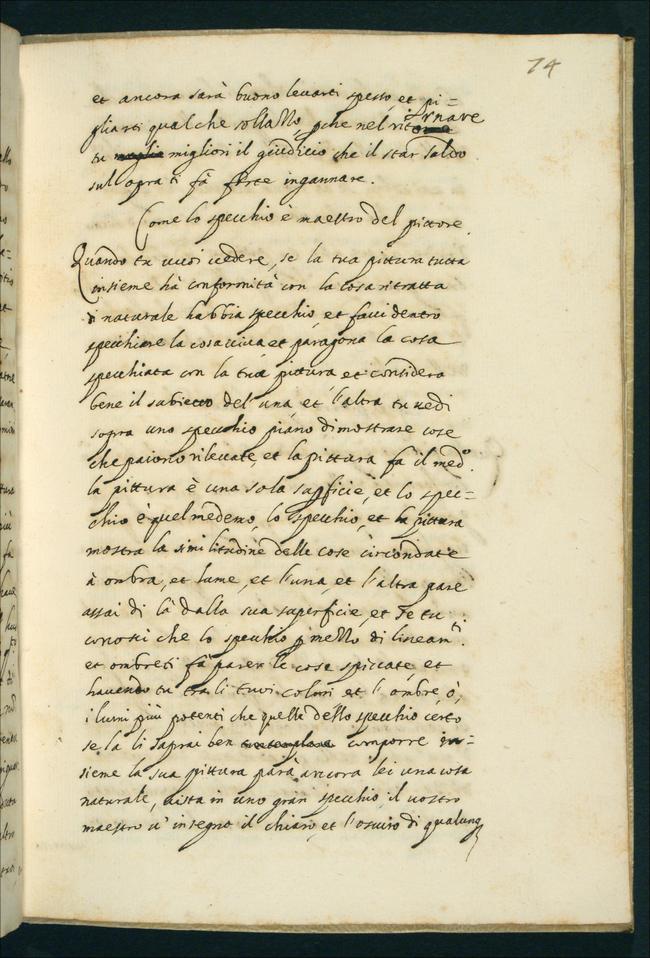 74
et ancora sarà buono levarti spesso, et pi=
gliarti qual che sollazzo, pche nel ritornare
tu migliori il giudicio che il star saldo
sull opra ti fà forte ingannare.
Come lo specchio è maestro del pittore.
Quando tu vuoi vedere, se la tua pittura tutta
insieme hà conformità con la cosa ritratta
di naturale habbia specchio, et favvi dentro
specchiare la cosa viva et paragona la cosa
specchiata con la tua pittura et considera
bene il subietto del una, et l'altra tu vedi
sopra uno specchio piano dimostrare cose
che paiono rilevate, et la pittura fa il med.o
la pittura è una sola supficie, et lo spec=
chio è quel medemo, lo specchio, et la pittura
mostra la similitudine delle cose circondate
à ombra, et lume, et l'una, et l'altra pare
assai di là dalla sua superficie, et se tu
conosci che lo specchio p mezzo di lineam.ti
et ombreti fà parer le cose spiccate, et
havendo tu tra li tuoi colori et l'ombre, ò,
i lumi più potenti che quelle dello specchio certo
se la li saprai ben comporre in=
sieme la sua pittura parà ancora lei una cosa
naturale, vista in uno gran specchio, il vostro
maestro v' insegna il chiaro, et l'oscuro di qualunq